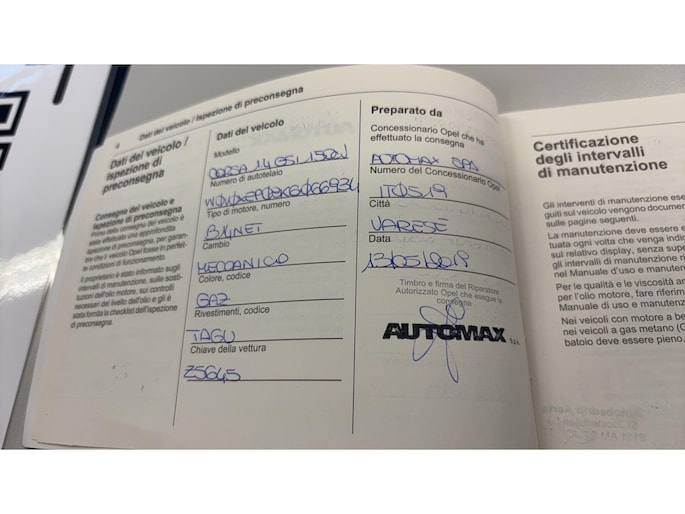 4 Dati del veicolo / Ispezione di preconsegna
Dati del veicolo /
ispezione di
preconsegna
Consegna del veicolo e
ispezione di preconsegna
Prima della consegna del veicolo è
stata effettuata una approfondita
ispezione di preconsegna, per garan-
tire che il veicolo Opel fosse in perfet-
te condizioni di funzionamento.
Il proprietario è stato informato sugli
intervalli di manutenzione, sulle sosti-
tuzioni dell'olio motore, sui controlli
necessari del livello dell'olio e gli è
stata fornita la checklist dell'ispezione
di preconsegna.
Dati del veicolo
Modello
CORSA 1.4 GSI 150CV
Numero di autotelaio
Tipo di motore, numero
B14NET
Cambio
MECCANICO
Colore, codice
GAZ
Rivestimenti, codice
TAGU
Chiave della vettura
Z5645
Preparato da
Concessionario Opel che ha
effettuato la consegna
AUTOMAX SPA
Numero del Concessionario Opel
IT0519
Città
VARESE
Data
13/05/2019
Timbro e firma del Riparatore
Autorizzato Opel che esegue la
consegna
AUTOMAX S.p.A.
Certificazione
degli intervalli
di manutenzione
Gli interventi di manutenzione ese
guiti sul veicolo vengono documen
sulle pagine seguenti.
La manutenzione deve essere e
tuata ogni volta che venga indic
sul relativo display, senza supe
gli intervalli di manutenzione ri
nel Manuale d'uso e manuten
Per le qualità e le viscosità ar
per l'olio motore, fare riferim
Manuale di uso e manutenz
Nei veicoli con motore a be
nei veicoli a gas metano (C
batoio deve essere pieno.